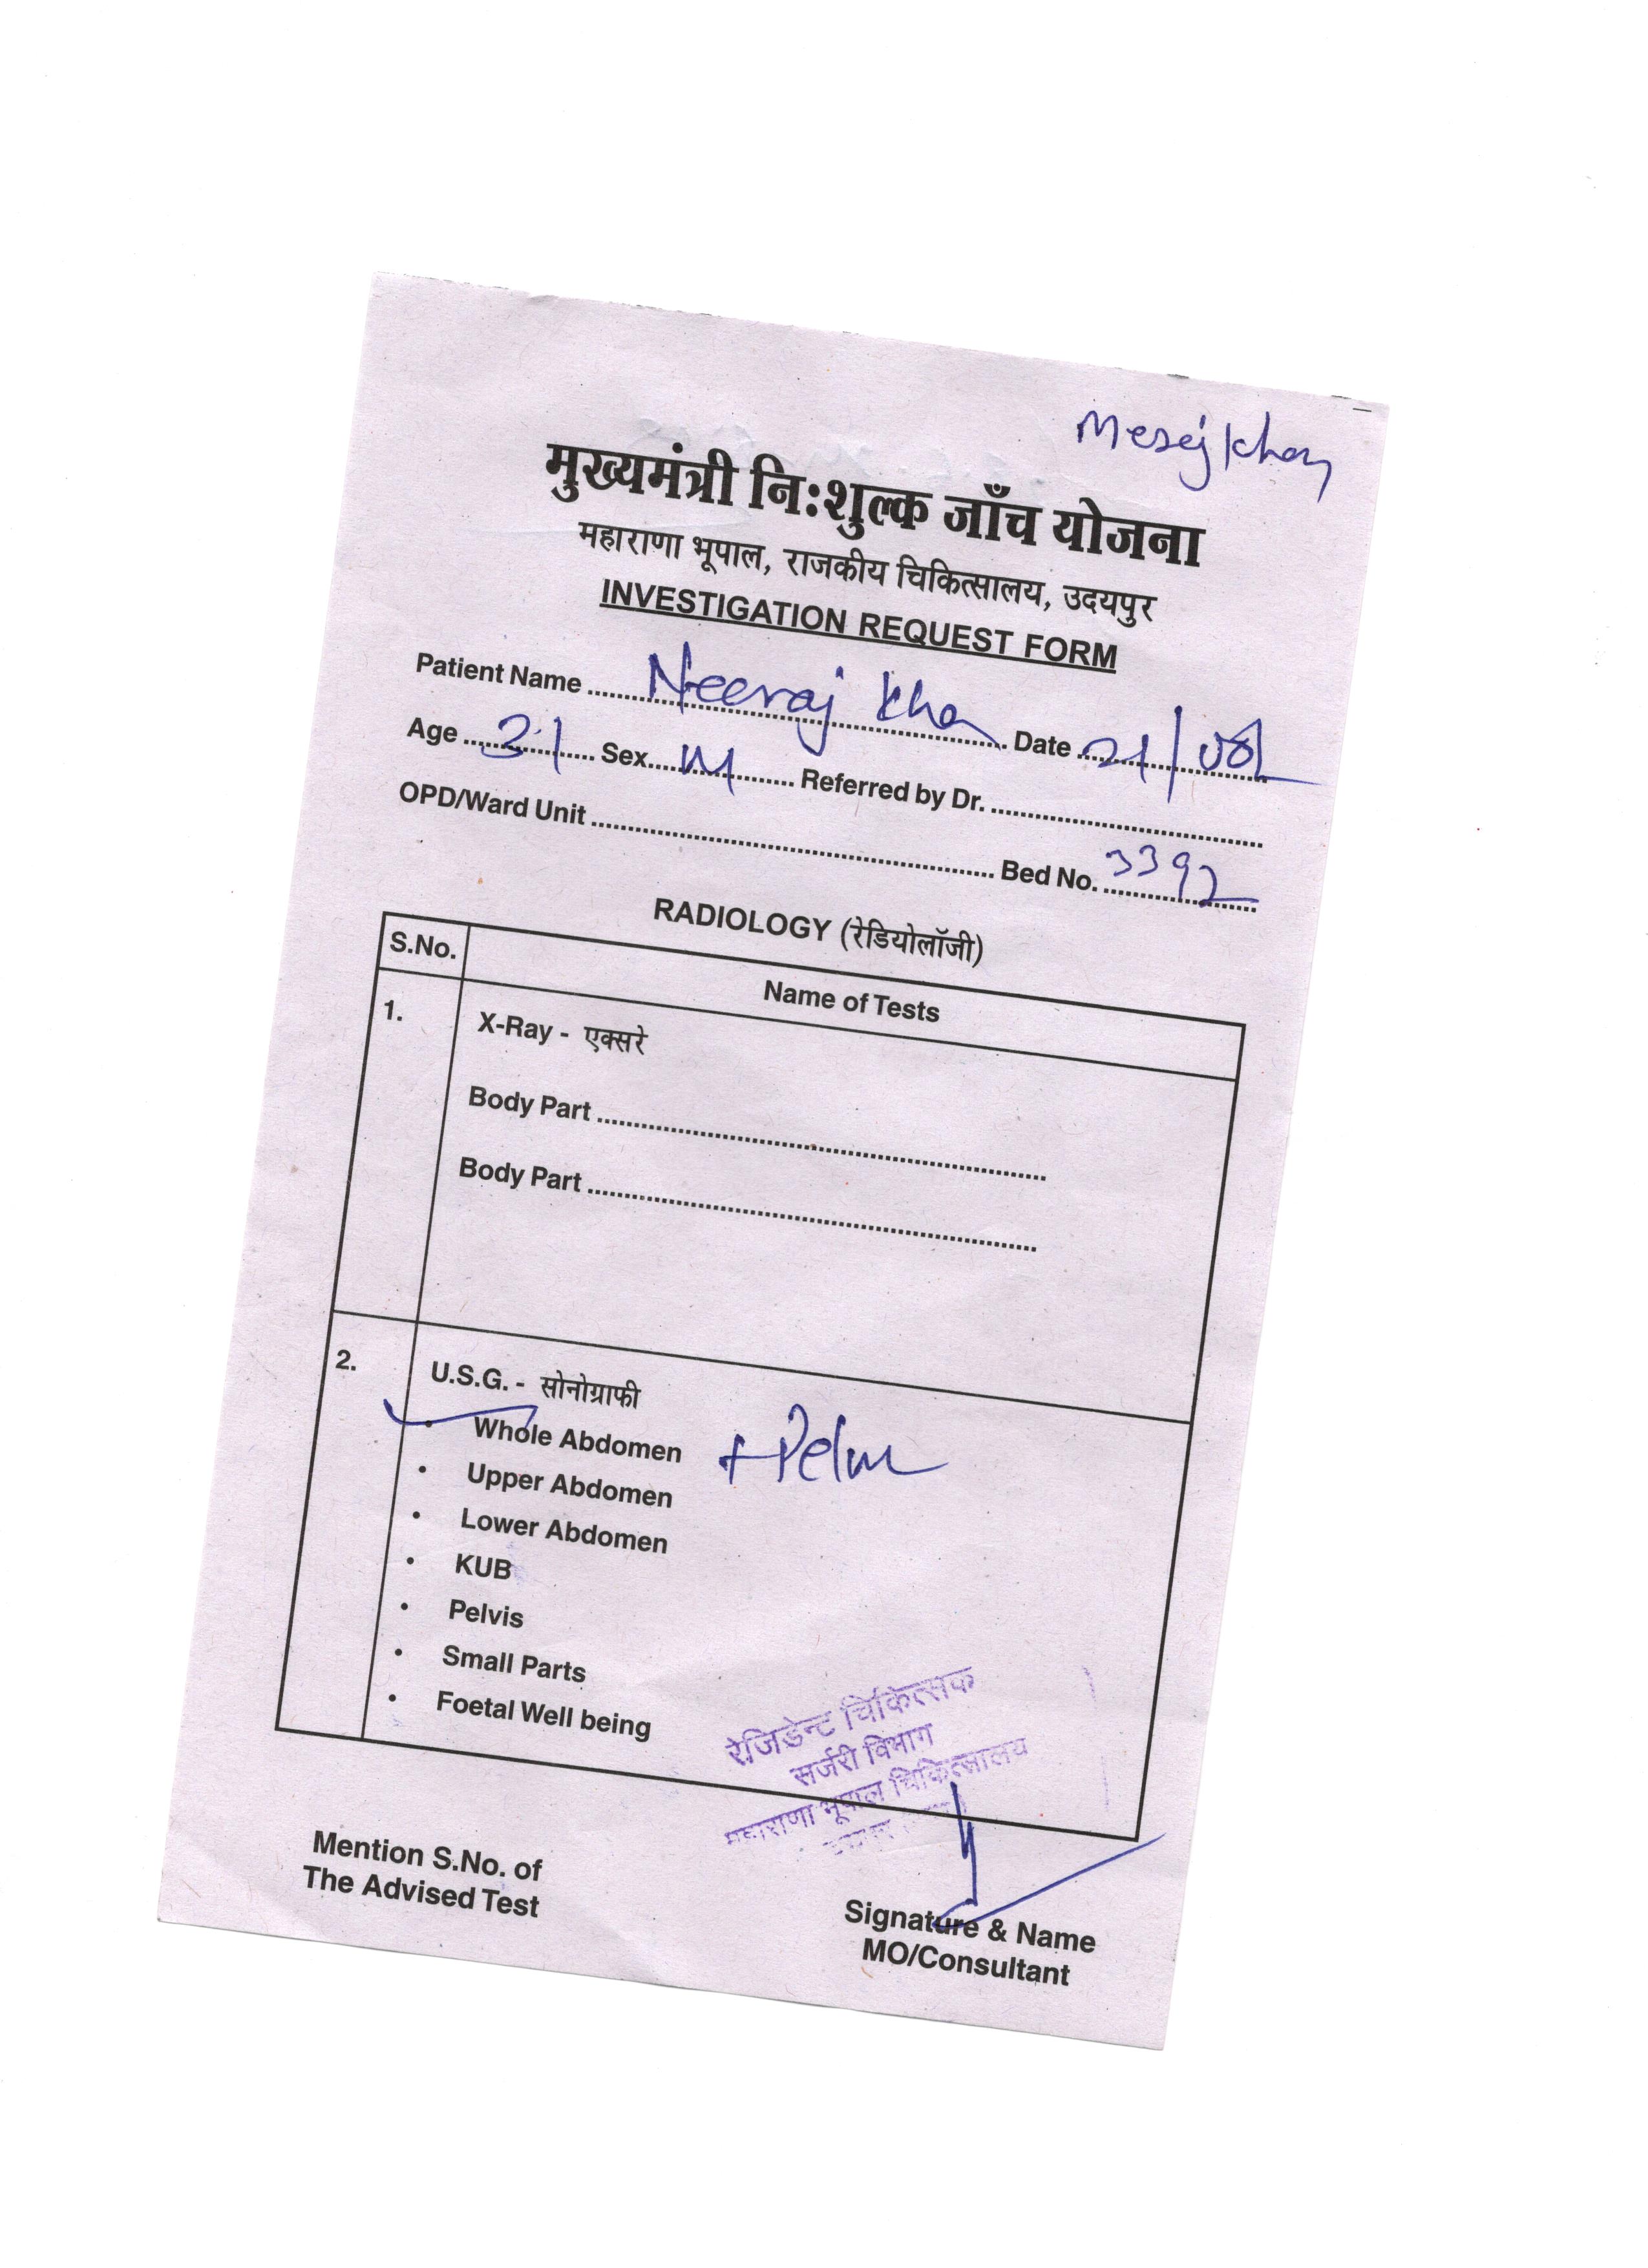 Mesej Khan
मुख्यमंत्री निःशुल्क जाँच योजना
महाराणा भूपाल, राजकीय चिकित्सालय, उदयपुर
INVESTIGATION REQUEST FORM
Patient Name Neeraj Khan Date 21/08
Age 31 Sex M Referred by Dr.
OPD/Ward Unit Bed No. 3392
RADIOLOGY (रेडियोलॉजी)
S.No. Name of Tests
1. X-Ray - एक्सरे
Body Part
Body Part
2. U.S.G. - सोनोग्राफी
• Whole Abdomen + Pelvis
• Upper Abdomen
• Lower Abdomen
• KUB
• Pelvis
• Small Parts
• Foetal Well being
रेजिडेन्ट चिकित्सक
सर्जरी विभाग
महाराणा भूपाल चिकित्सालय
Mention S.No. of
The Advised Test
Signature & Name
MO/Consultant